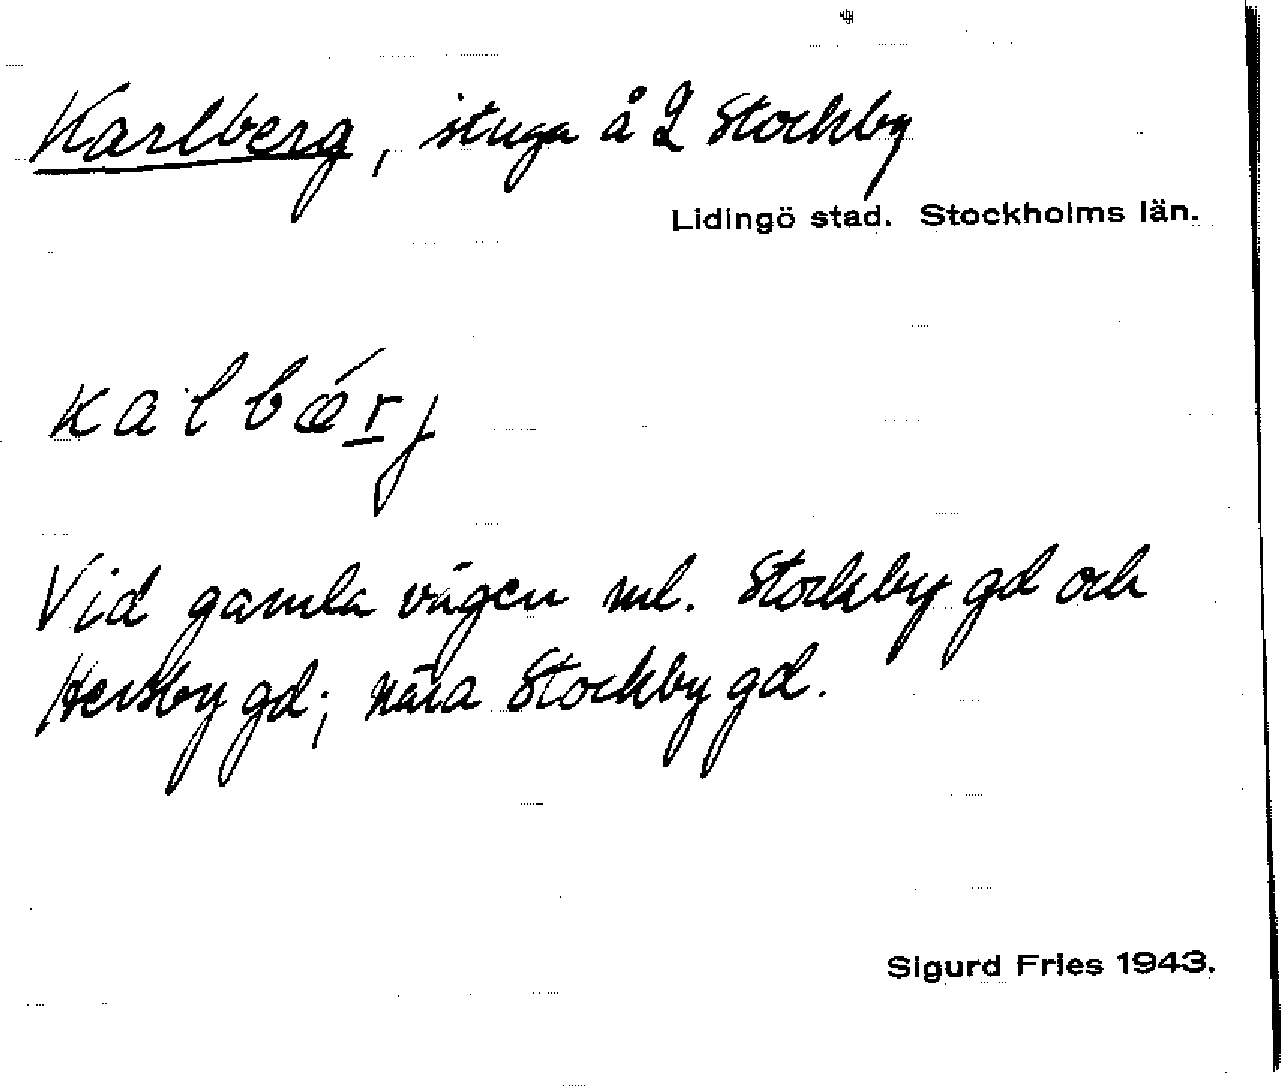 Karlberg, stuga å 2 Stockby
Lidingö stad. Stockholms län.
kalbǽrj
Vid gamla vägen ml. Stockby gd och
Hersby gd; nära Stockby gd.
Sigurd Fries 1943.